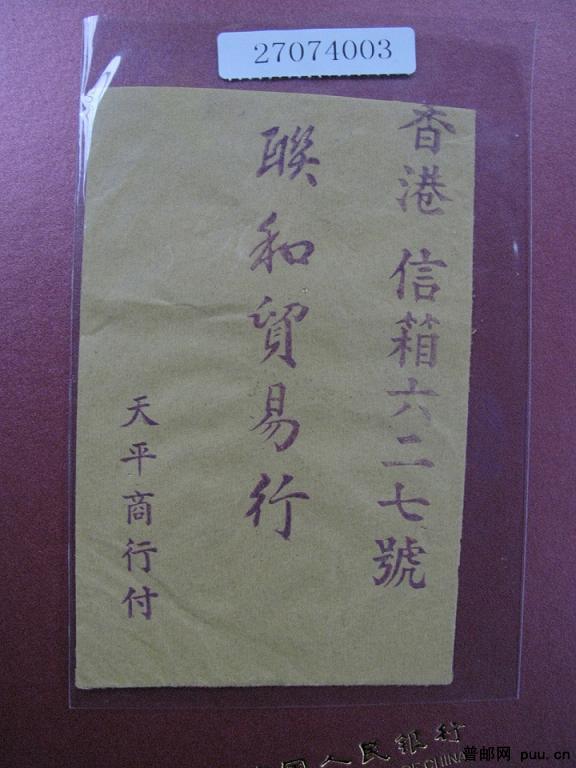 27074003
香港信箱六二七號
聯和貿易行
天平商行付
國人民銀行
OF CHINA
普邮网 puu.cn